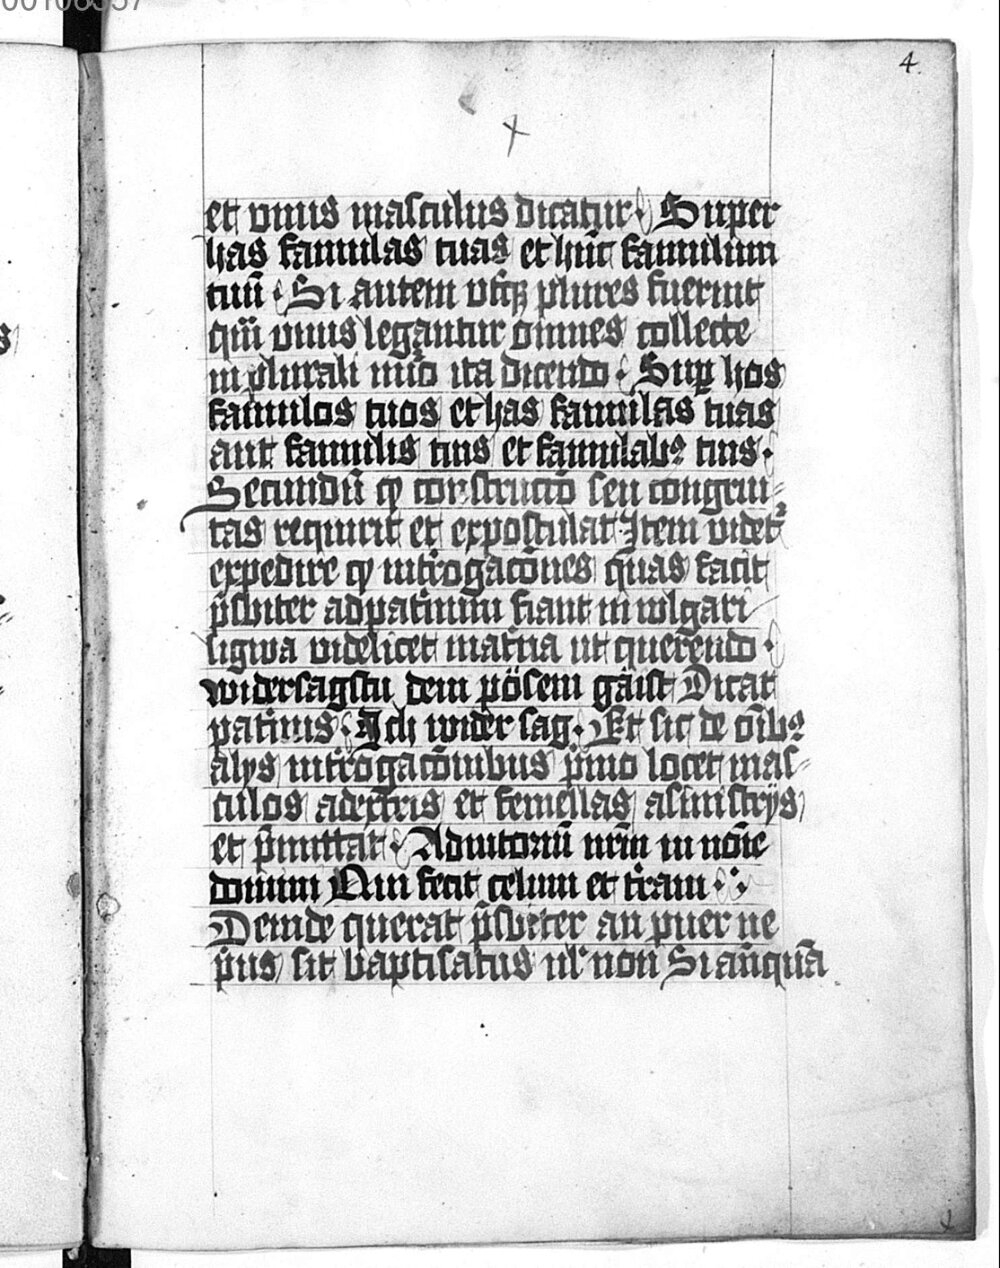 4.
et vnus masculus dicatur Super
has famulas tuas et hūc famulum
tuū Si autem vtrq̄ plures fuerint
qm̄ vnus legantur omnes collecte
in plurali nūo ita dicendo Suꝑ hos
famulos tuos et has famulas tuas
aut famulis tuis et famulabꝫ tuis
Secundū ꝙ constructō seu congrui⸗
tas requirit et expostulat Item videt᷑
expedire ꝙ int̄rogacōnes quas facit
p̄sbiter ad patrinum fiant in wlgari
ligwa videlicet mat̄na ut querendo
widersagstu dem pösem gäist Dicat
patrinus Ich wider sag Et sic de oīb
alys int̄rogacōnibus p̄mo locet mas⸗
culos a dext̄ris et femellas a sinistrys
et p̄mittat Adiutoriū nr̄m in nōie
domini Qui fecit celum et t̄ram
Deinde querat p̄sbiter an puer ne
p̄us sit baptisatus ul' non Si anquā